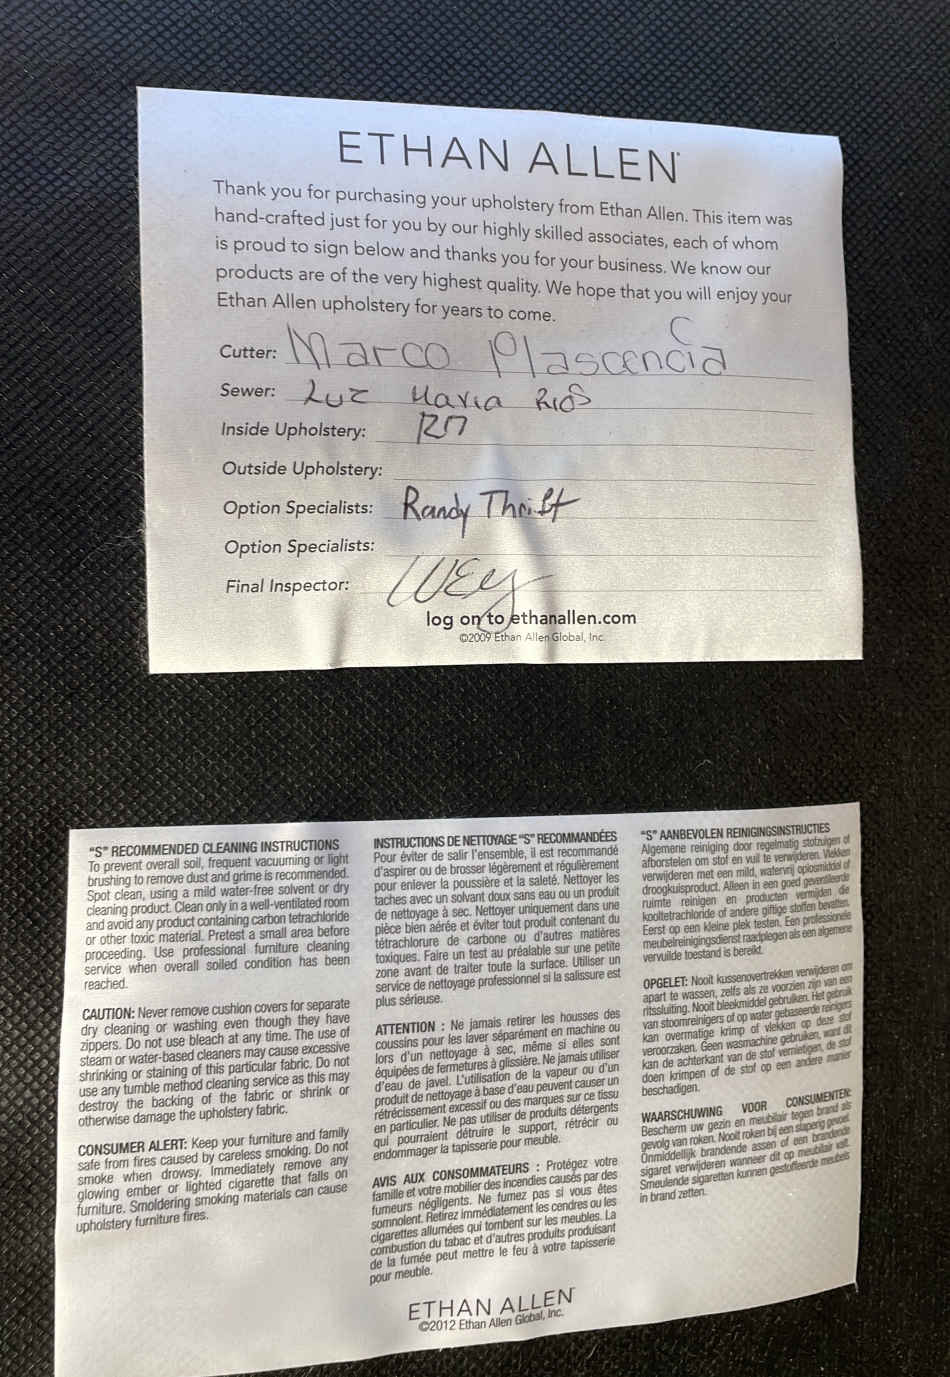 ETHAN ALLEN
Thank you for purchasing your upholstery from Ethan Allen. This item was
hand-crafted just for you by our highly skilled associates, each of whom
is proud to sign below and thanks you for your business. We know our
products are of the very highest quality. We hope that you will enjoy your
Ethan Allen upholstery for years to come.
Cutter: Marco Plascencia C
Sewer: Luz Maria Rios
Inside Upholstery:
Outside Upholstery:
Option Specialists: Randy Thrift
Option Specialists:
Final Inspector:
log on to ethanallen.com
©2009 Ethan Allen Global, Inc.
"S" RECOMMENDED CLEANING INSTRUCTIONS
To prevent overall soil, frequent vacuuming or light
brushing to remove dust and grime is recommended.
Spot clean, using a mild water-free solvent or dry
cleaning product. Clean only in a well-ventilated room
and avoid any product containing carbon tetrachloride
or other toxic material. Pretest a small area before
proceeding. Use professional furniture cleaning
service when overall soiled condition has been
reached.
CAUTION: Never remove cushion covers for separate
dry cleaning or washing even though they have
zippers. Do not use bleach at any time. The use of
steam or water-based cleaners may cause excessive
shrinking or staining of this particular fabric. Do not
use any tumble method cleaning service as this may
destroy the backing of the fabric or shrink or
otherwise damage the upholstery fabric.
CONSUMER ALERT: Keep your furniture and family
safe from fires caused by careless smoking. Do not
smoke when drowsy. Immediately remove any
glowing ember or lighted cigarette that falls on
furniture. Smoldering smoking materials can cause
upholstery furniture fires.
INSTRUCTIONS DE NETTOYAGE "S" RECOMMANDÉES
Pour éviter de salir l'ensemble, il est recommandé
d'aspirer ou de brosser légèrement et régulièrement
pour enlever la poussière et la saleté. Nettoyer les
taches avec un solvant doux sans eau ou un produit
de nettoyage à sec. Nettoyer uniquement dans une
pièce bien aérée et éviter tout produit contenant du
tétrachlorure de carbone ou d'autres matières
toxiques. Faire un test au préalable sur une petite
zone avant de traiter toute la surface. Utiliser un
service de nettoyage professionnel si la salissure est
plus sérieuse.
ATTENTION : Ne jamais retirer les housses des
coussins pour les laver séparément en machine ou
lors d'un nettoyage à sec, même si elles sont
équipées de fermetures à glissière. Ne jamais utiliser
d'eau de javel. L'utilisation de la vapeur ou d'un
produit de nettoyage à base d'eau peuvent causer un
rétrécissement excessif ou des marques sur ce tissu
en particulier. Ne pas utiliser de produits détergents
qui pourraient détruire le support, rétrécir ou
endommager la tapisserie pour meuble.
AVIS AUX CONSOMMATEURS : Protégez votre
famille et votre mobilier des incendies causés par des
fumeurs négligents. Ne fumez pas si vous êtes
somnolent. Retirez immédiatement les cendres ou les
cigarettes allumées qui tombent sur les meubles. La
combustion du tabac et d'autres produits produisant
de la fumée peut mettre le feu à votre tapisserie
pour meuble.
"S" AANBEVOLEN REINIGINGSINSTRUCTIES
Algemene reiniging door regelmatig stofzuigen of
afborstelen om stof en vuil te verwijderen. Vlekken
verwijderen met een mild, watervrij oplosmiddel of
droogkuisproduct. Alleen in een goed geventileerde
ruimte reinigen en producten vermijden die
kooltetrachloride of andere giftige stoffen bevatten.
Eerst op een kleine plek testen. Een professionele
meubelreinigingsdienst raadplegen als een algemene
vervuilde toestand is bereikt.
OPGELET: Nooit kussenovertrekken verwijderen om
apart te wassen, zelfs als ze voorzien zijn van een
ritssluiting. Nooit bleekmiddel gebruiken. Het gebruik
van stoomreinigers of op water gebaseerde reinigers
kan overmatige krimp of vlekken op deze stof
veroorzaken. Geen wasmachine gebruiken, want dit
kan de achterkant van de stof vernietigen, de stof
doen krimpen of de stof op een andere manier
beschadigen.
WAARSCHUWING VOOR CONSUMENTEN:
Bescherm uw gezin en meubilair tegen brand als
gevolg van roken. Nooit roken bij een slaperig gevoel.
Onmiddellijk brandende assen of een brandende
sigaret verwijderen wanneer dit op meubilair valt.
Smeulende sigaretten kunnen gestoffeerde meubels
in brand zetten.
ETHAN ALLEN
©2012 Ethan Allen Global, Inc.